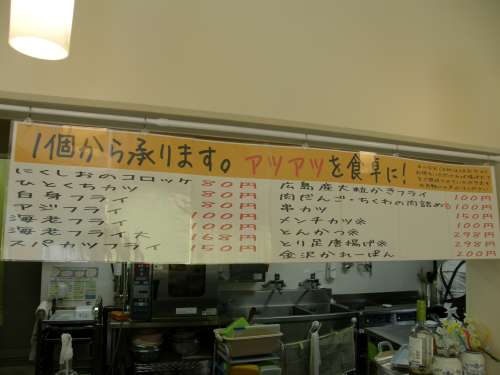 1個から承ります。アツアツを食卓に!
にくしおのコロッケ 80円
ひとくちカツ 80円
白身フライ 80円
アジフライ 80円
海老フライ 150円
海老フライ大 168円
スパカツフライ 150円
広島産大粒かきフライ 100円
肉だんご・ちくわの肉詰め 各100円
串カツ 150円
メンチカツ※ 100円
とんかつ※ 298円
とり足唐揚げ※ 298円
金沢かれーぱん 200円